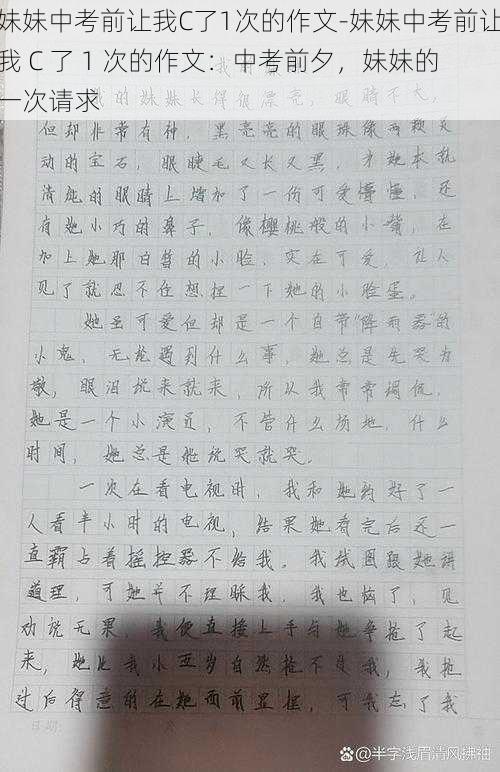 妹妹中考前让我C了1次的作文-妹妹中考前让
我 C 了 1 次的作文：中考前夕，妹妹的
一次请求
我的妹妹长得很漂亮，眼睛不大，
但却非常有神，黑亮亮的眼珠像两颗灵
动的宝石，眼睫毛又长又黑，为她本就
清纯的眼睛上增加了一份可爱懵懂，还
有她小巧的鼻子，像樱桃般的小嘴，在
加上她那白皙的小脸，实在可爱，让人
见了就忍不住想捏一下她的小脸蛋。
她虽可爱但却是一个自带“降雨器”的
小鬼，无论遇到什么事，她总是先哭为
敬，眼泪说来就来，所以我常常调侃，
她是一个小演员，不管什么场地，什么
时间，她总是她说哭就哭。
一次在看电视时，我和她约好了一
人看半小时的电视，结果她看完后还一
直霸占着摇控器不给我。我试图跟她讲
道理，可她并不理睬我，我也恼了，见
劝说无果，我便直接上手与她争抢了起
来，她比我小五岁自然抢不过我，我抢
过后得意的在她面前显摆，可我忘了我
日期:
@半字浅眉清风拂袖